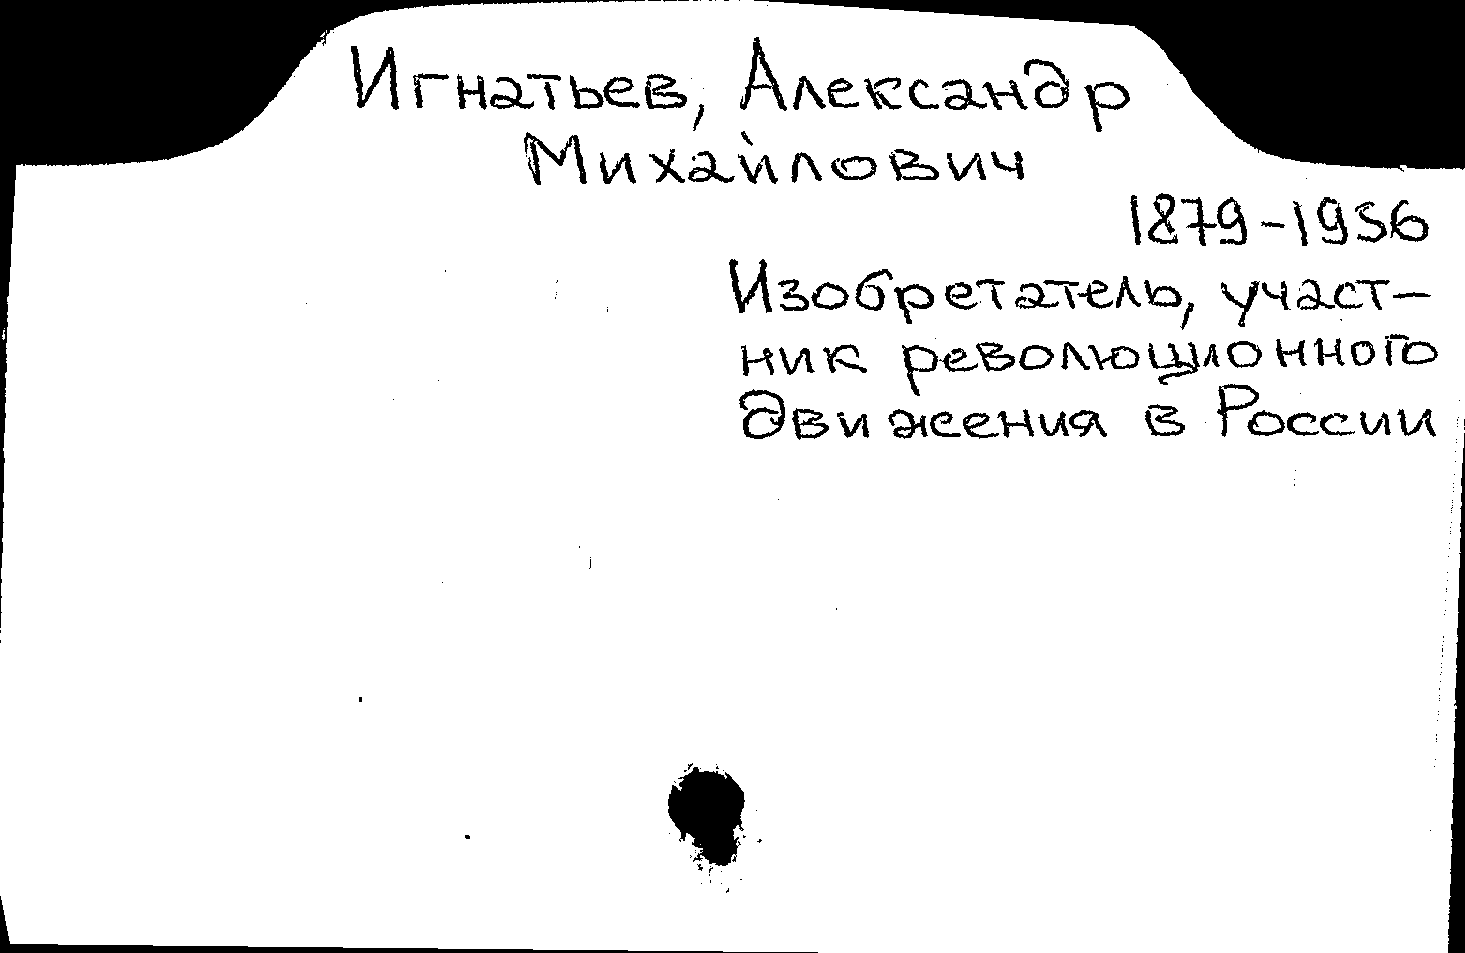 Игнатьев, Александр
Михайлович
1879-1936
Изобретатель, участ-
ник революционного
движения в России